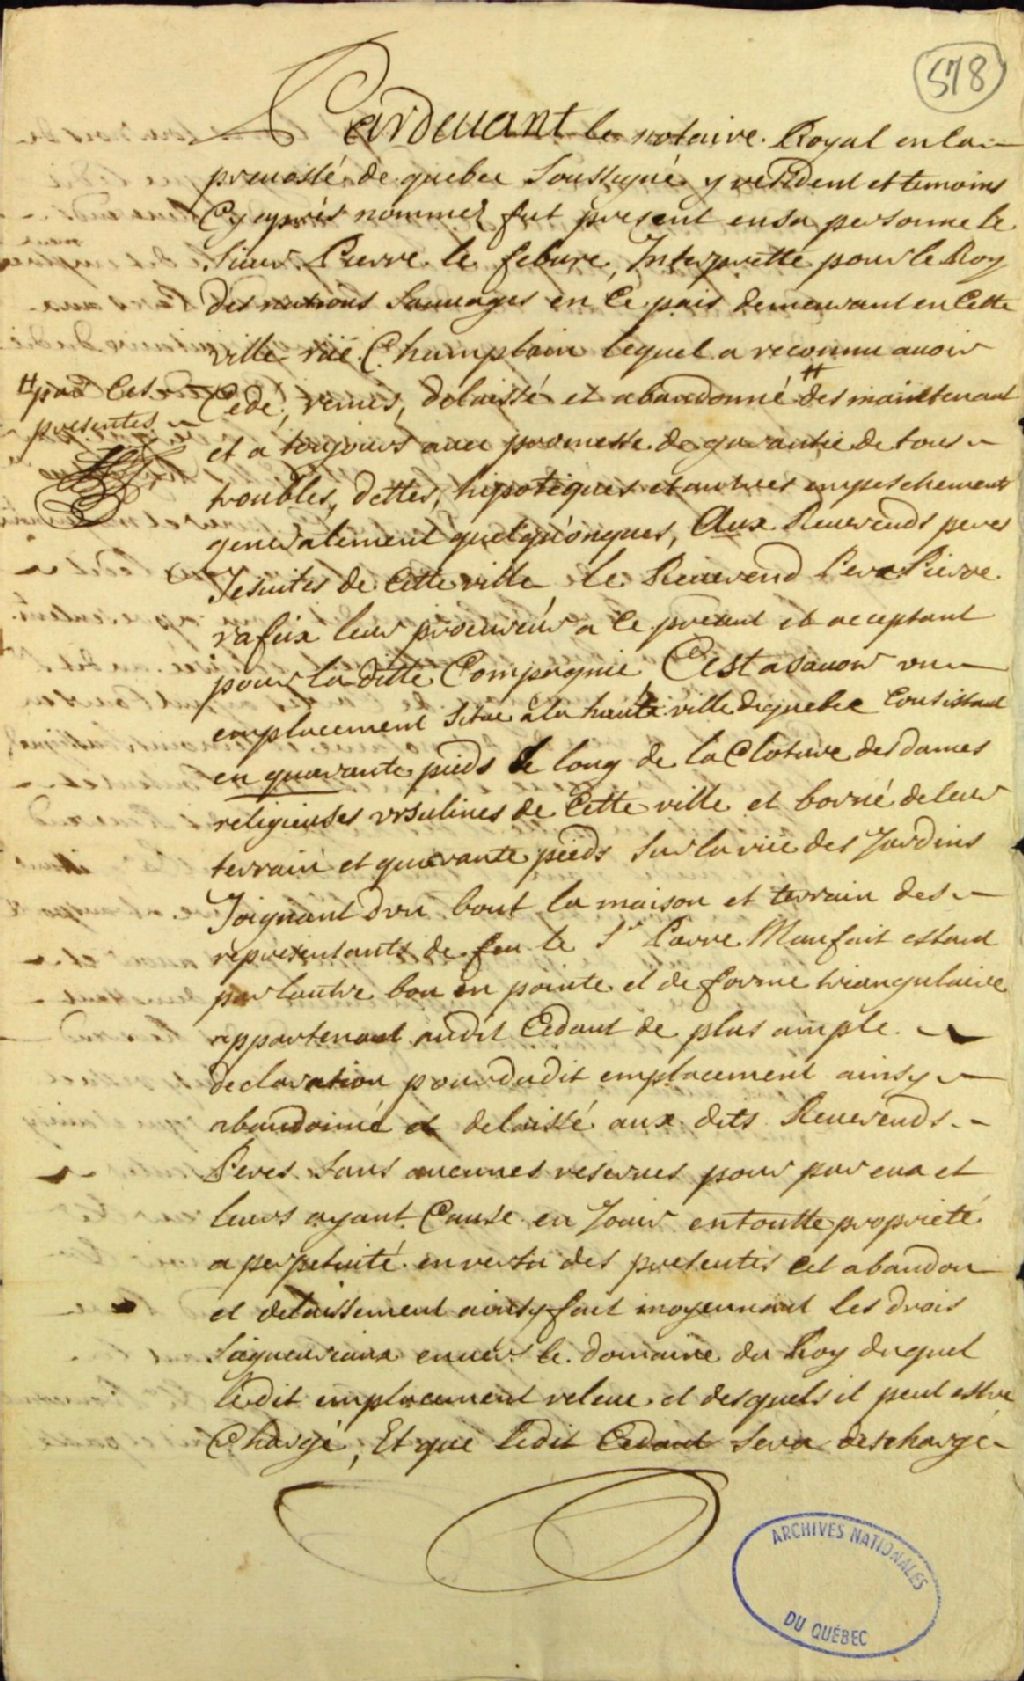 578
Pardevant le notaire Royal en la
prevosté de quebec Soussigné y resident et temoins
Cy après nommez fut present en sa personne le
Sieur Pierre le febure, Interprette pour le Roy
des nations Sauvages en Ce païs demeurant en Cette
ville rüe Champlain lequel a reconnu avoir
Cedé, remis, delaissé et abandonné # des maintenant
# par Ces
presentes
et a toujours avec promesse de garantie de tous
troubles, dettes, hipoteques et autres empeschements
generalement quelqu'onques, Aux Reverends peres
Jesuites de Cette ville, le Reverend Pere Pierre
rafeix leur procureur a ce present et acceptant
pour la ditte Compagnie, C'est a savoir un
emplacement Situé à la haute ville de quebec Consistant
en quarante pieds le long de la Cloture des dames
religieuses ursulines de Cette ville et borné de leur
terrain et quarante pieds Sur la rüe des Jardins
Joignant d'un bout la maison et terrain des
representants de feu le Sr Pierre Maufait estant
par l'autre bou en pointe et de forme triangulaire
appartenant audit Cedant de plus ample
declaration pour dudit emplacement ainsy
abandonné et delaissé aux dits Reverends
Peres Sans aucunes reserves pour par eux et
leurs ayant Cause en Jouir en toutte proprieté
a perpetuité en vertu des presentes cet abandon
et delaissement ainsy fait moyennant les drois
Saigneuriaux envers le domaine du Roy duquel
ledit emplacement releve et desquels il peut estre
Chargé, Et que ledit Cedant Sera deschargé
ARCHIVES NATIONALES
DU QUÉBEC